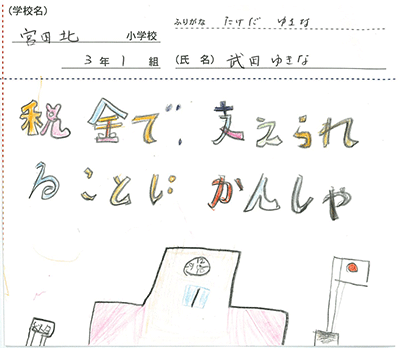 (学校名)
宮田北 小学校
ふりがな たけだ ゆきな
3年1組
(氏名) 武田ゆきな
税金で、支えられ
ることに かんしゃ